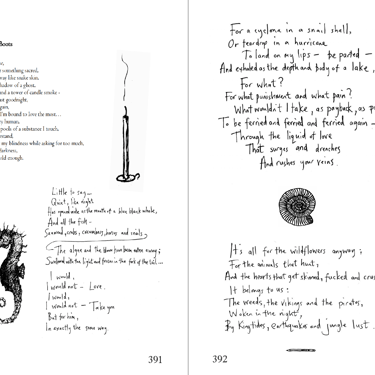 Boots
something sacred,
way like snake skin,
shadow of a ghost,
and a tower of candle smoke -
goodnight.
I'm bound to love the most...
human.
pools of a substance I touch,
my blindness while asking for too much,
darkness,
cold enough.
Little to say —
Quiet, like night
Has opened wide as the mouth of a blue black whale,
And all the fish -
Seaweed, crabs, cucumbers, bunny and snails;
The algae and the bloom have been eaten away;
Sunburnt with the light and frozen in the fork of the
I would,
I would not — Love.
I would,
I would not — Take you
But for him,
In exactly the same way.
391
For a cyclone in a snail shell,
Or teardrop in a hurricane
To land on my lips — be parted —
And exhaled as the depth and body of a lake,
For what?
For what punishment and what pain?
What wouldn't I take, as payback, as
To be ferried and ferried and ferried again —
Through the liquid of love
That surges and drenches
And rushes your veins.
It's all for the wildflowers anyway;
For the animals that hunt,
And the hearts that get skinned, fucked and
It belongs to us:
The weeds, the vikings and the pirates,
Woken in the night,
By King tides, earthquakes and jungle lust.
392